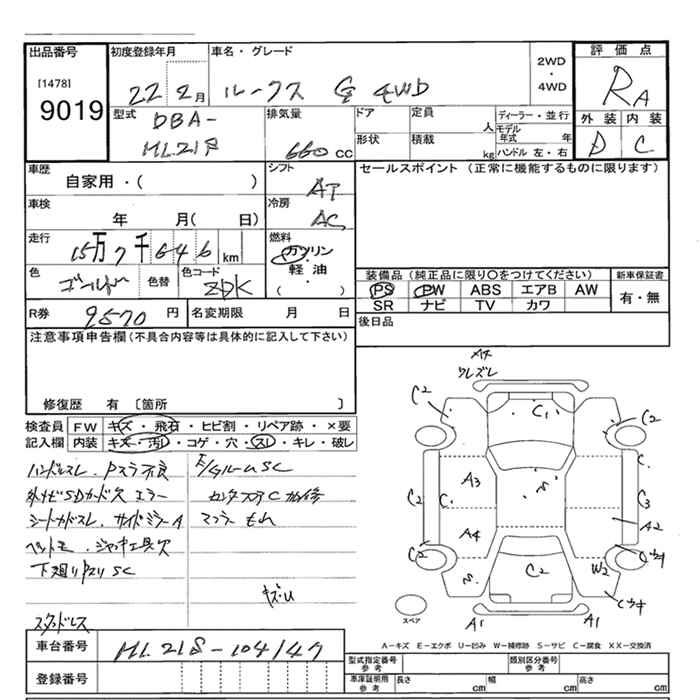 出品番号
[1478]
9019
初度登録年月
22 2月
車名・グレード
ルークス G 4WD
2WD
・
4WD
評価点
RA
外装 内装
D C
型式
DBA-
ML21S
排気量
660 cc
ドア
定員
人
ディーラー・並行
モデル年式 年
形状
積載
kg
ハンドル 左・右
車歴
自家用・( )
シフト
AT
セールスポイント (正常に機能するものに限ります)
車検
年 月( 日)
冷房
AC
走行
15万7千646 km
燃料
ガソリン
軽油
・
( )
色
ゴールド
色替
色コード
ZDK
装備品 (純正品に限り○をつけてください)
新車保証書
PS PW ABS エアB AW
有・無
SR ナビ TV カワ
R券 9570 円
名変期限 月 日
後日品
注意事項申告欄(不具合内容等は具体的に記入して下さい)
修復歴 有 〔箇所 〕
検査員記入欄
FW キズ・飛石・ヒビ割・リペア跡・×要
内装 キズ・汚れ・コゲ・穴・スレ・キレ・破レ
ハンドルスレ. Pスラ不良
外ナビSDカード欠 エラー
シートカドスレ. サイドミラーA
ジャッキ工具欠
下廻りサスリSC
E/GルームSC
マフラー もれ
スタッドレス
ウレズレ
C2
C1
C2
A3
C.
S
C.
C2
C3
A4
A2
C2
S
C2
W2
A1
A1
スペア
A-キズ E-エクボ U-凹み W-補修跡 S-サビ C-腐食 XX-交換済
車台番号
ML21S-104147
登録番号
型式指定番号 参考
類別区分番号 参考
車庫証明用 参考
長さ cm
幅 cm
高さ cm